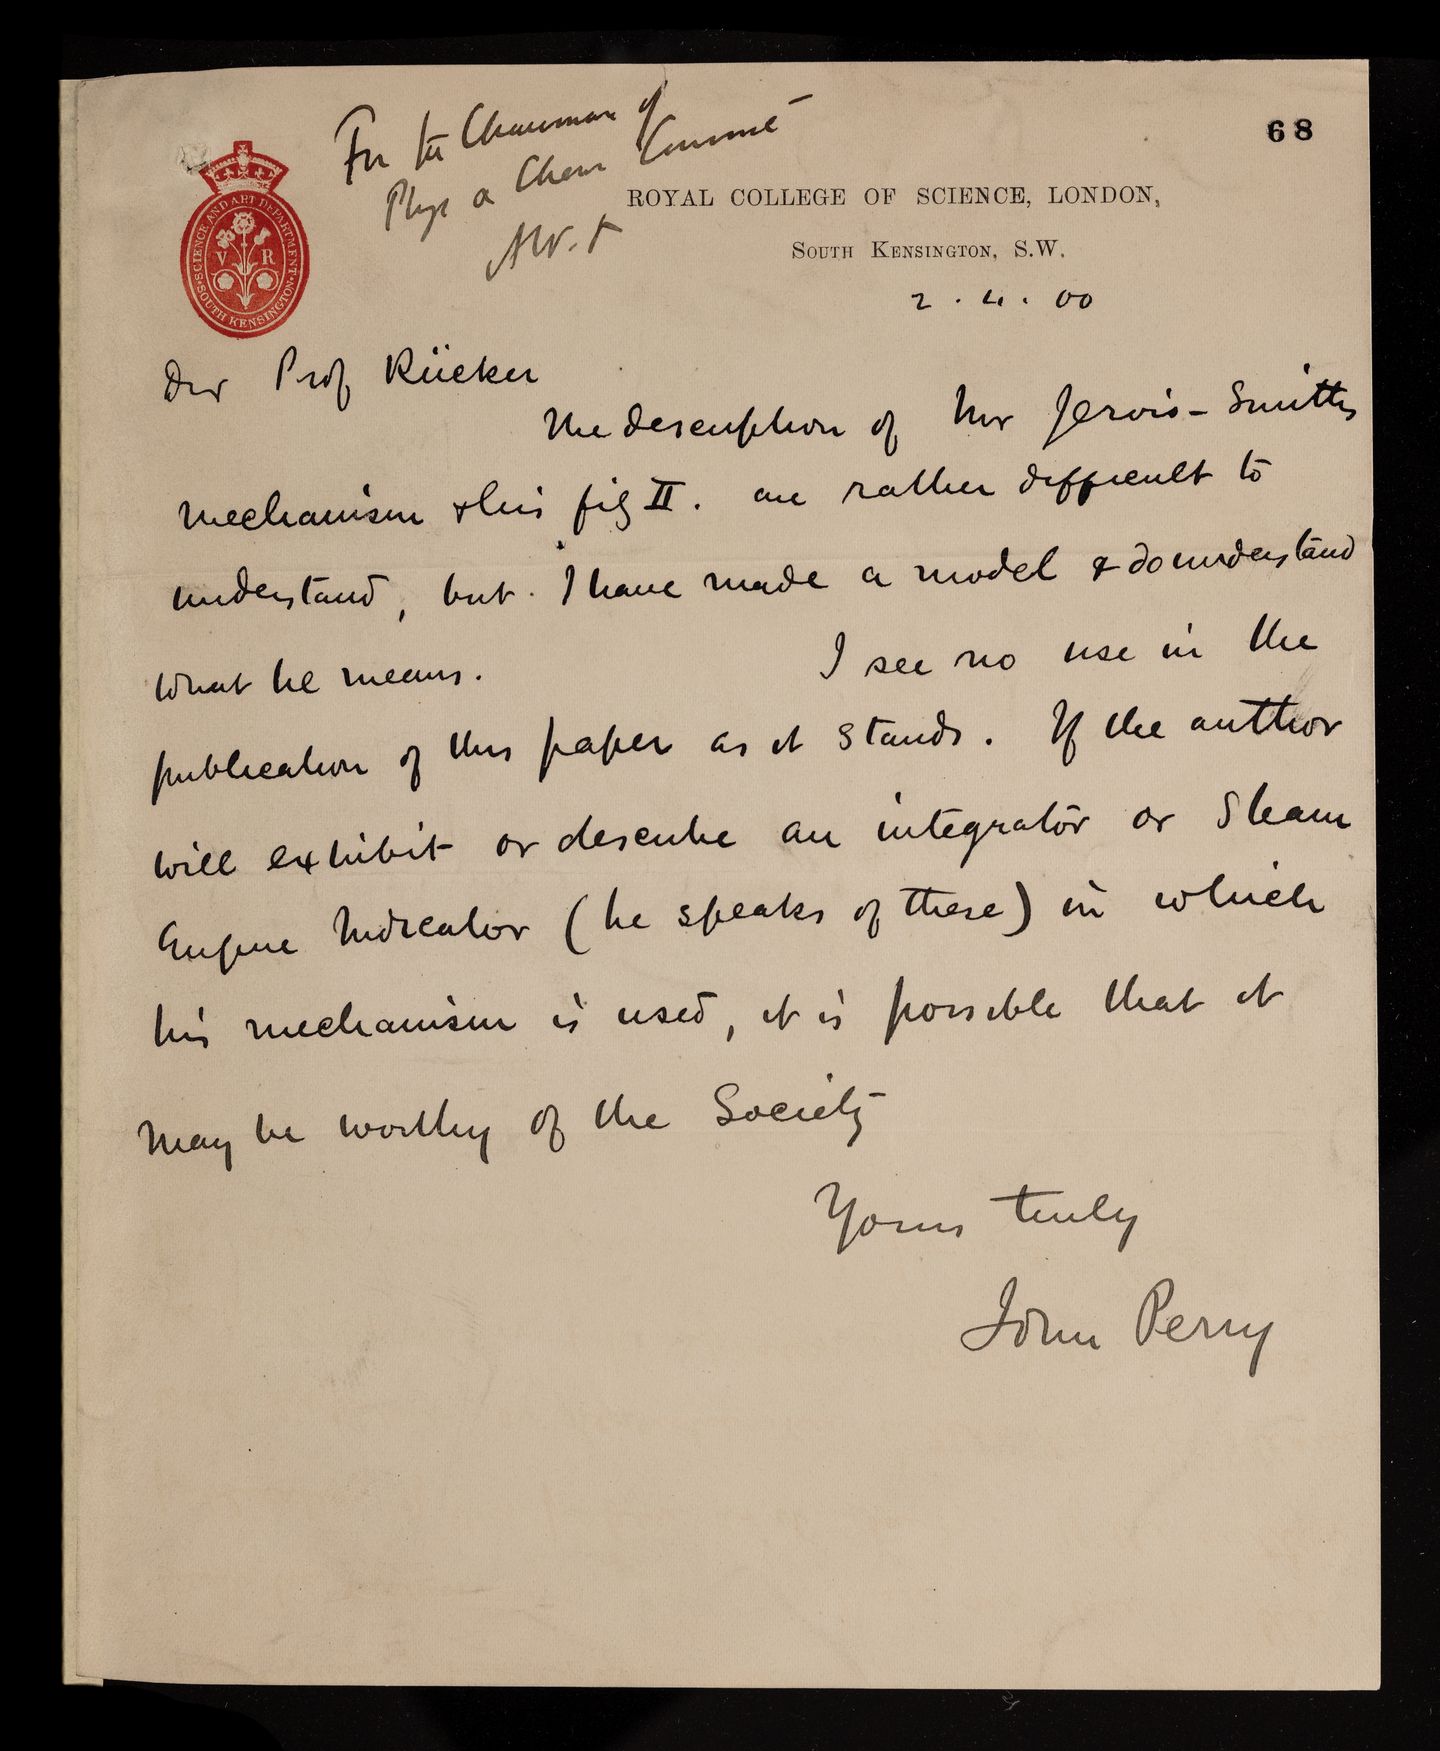 68
For the Chairman of
Phys & Chem Committ
SCIENCE AND ART DEPARTMENT
V R
SOUTH KENSINGTON
ROYAL COLLEGE OF SCIENCE, LONDON,
SOUTH KENSINGTON, S.W.
2 . 4 . 00
Dear Prof Rücker
The description of Mr Jervis-Smith's
mechanism & his fig II. are rather difficult to
understand, but I have made a model & do understand
what he means. I see no use in the
publication of this paper as it stands. If the author
will exhibit or describe an integrator or Steam
Engine Indicator (he speaks of these) in which
his mechanism is used, it is possible that it
may be worthy of the Society
Yours truly
John Perry